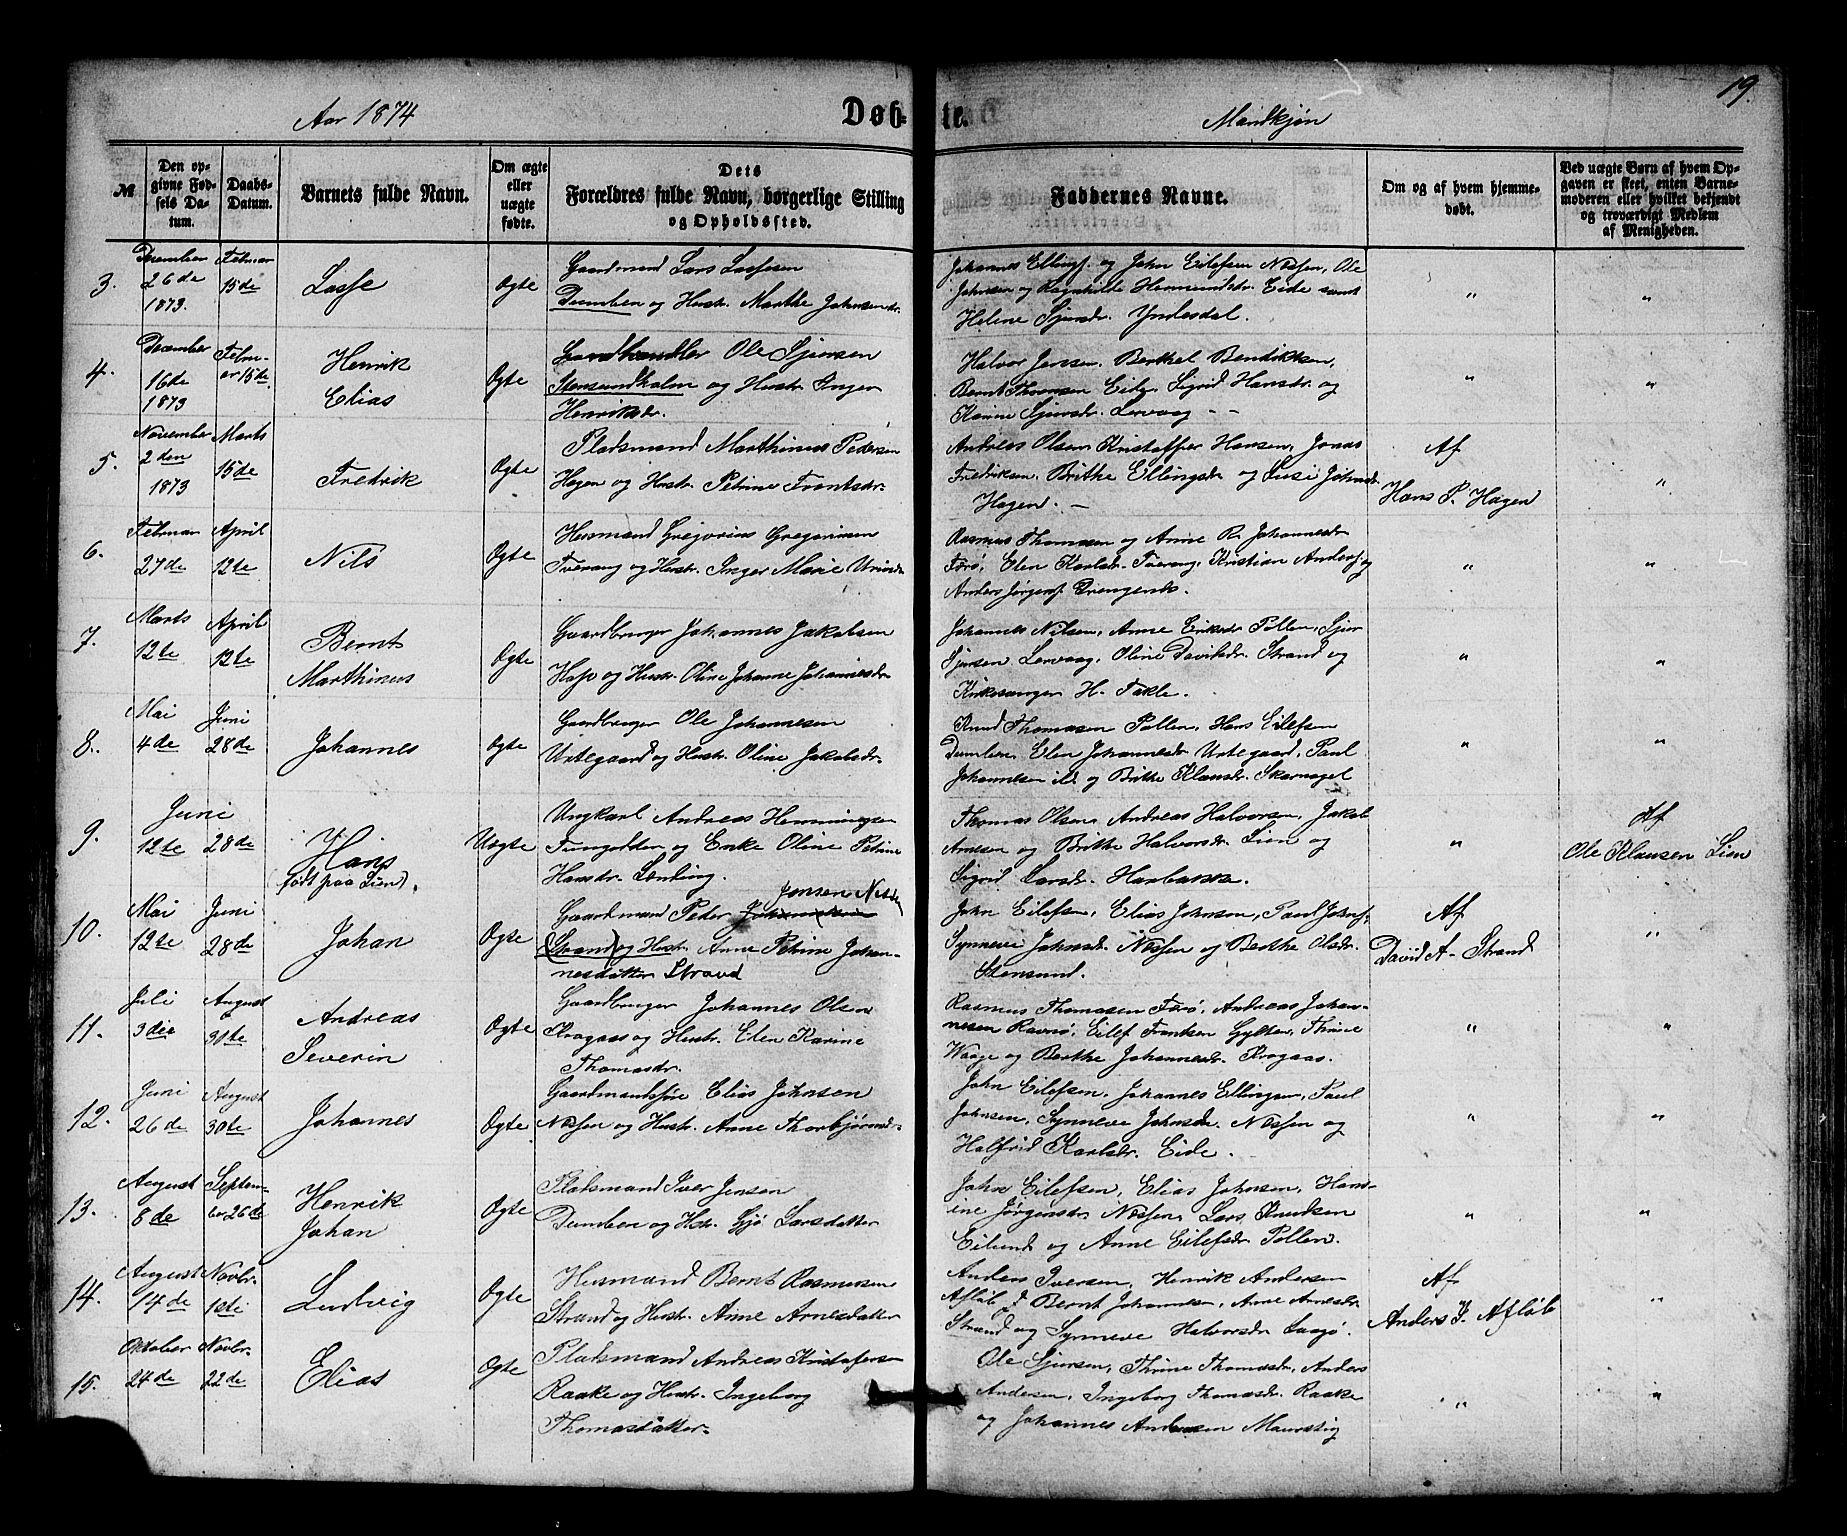 19.
Aar 1874
Døb-
te.
Mandkjøn
№
Den op-
givne Fød-
sels Da-
tum.
Daabs-
Datum.
Barnets fulde Navn.
Om ægte
eller
uægte
fødte.
Dets
Forældres fulde Navn, borgerlige Stilling
og Opholdssted.
Faddernes Navne.
Om og af hvem hjemme-
døbt.
Ved uægte Børn af hvem Op-
gaven er skeet, enten Barne-
moderen eller hvilket bekjendt
og troværdigt Medlem
af Menigheden.
3.
December
26de
1873.
Februar
15de
Lasse
Ægte
Gaardmand Lars Lassesen
Dumben og Hustr. Marthe Johnsendr.
Johannes Ellingf. og John Eilefsen Nessen, Ole
Johnsen og Ragnhilde Hermundsdr. Eide samt
Helene Sjursdr. Yndesdal.
"
"
4.
December
16de
1873
Febru-
ar 15de
Henrik
Elias
Ægte
Landhandler Ole Sjursen
Stensundholm og Hustr. Inger
Henriksdr.
Halvor Jensen, Berthel Bendiktsen,
Bernt Thomsen Sigrid Hansdr. og
Karine Sjursdr. Lervaag - -
"
"
5.
November
2den
1873
Marts
15de
Fredrik
Ægte
Pladsmand Marthinus Pedersen
Hagen og Hustr. Petrine Frantsdr.
Andreas Olsen, Kristoffer Hansen, Jonas
Fredriksen, Brithe Ellingsdr. og Susi Johnsdr.
Hagen. -
Af
Hans P. Hagen
"
6.
Februar
27de
April
12te
Nils
Ægte
Husmand Gregorius Gregoriusen
Tverang og Hustr. Inger Marie
Rasmus Thomassen og Anne R. Johannesdr.
Færø, Elen Karlsdr. Tverang, Kristian Andersf. og
Anders Jørgensf. Drengenes.
"
"
7.
Marts
12te
April
12te
Bernt
Marthinus
Ægte
Gaardbruger Johannes Jakobsen
Hop og Hustr. Oline Johanne Johannesdr.
Johannes Nilsen, Anne Eriksdr. Pollen, Sjur
Sjursen Lervaag, Oline Davidsdr. Strand og
Kirkesanger H. Takle.
"
"
8.
Mai
4de
Juni
28de
Johannes
Ægte
Gaardbruger Ole Johannesen
Urtegaard og Hustr. Oline Jakobsdr.
Knud Thomasen Pollen, Hans Eilefsen
Dumben, Elen Johannesdr. Urtegaard, Paul
Johannesen ib. og Brithe Klausdr. Skarnagel
"
"
9.
Juni
12te
28de
Hans
(født paa Lien).
Uægte
Ungkarl Andreas Hemmingsen
og Enke Oline Petrine
Hansdr.
Thomas Olsen, Andreas Halvorsen, Jakob
Arnesen og Brithe Halvorsdr. Lien og
Sigrid Larsdr. Harbakke.
"
Af
Ole Klausen Lien
10.
Mai
12te
Juni
28de
Johan
Ægte
Jensen
Gaardmand Peder
(Strand) og Hustr. Anne Petrine Johan-
nesdatter Strand
John Eilefsen, Elias Johnsen, Paul Johnsf.
Synneve Johnsdr. Nessen og Berthe Olsdr.
Stensund.
Af
David A. Strand
"
11.
Juli
3die
August
30te
Andreas
Severin
Ægte
Gaardbruger Johannes Olsen
Krogaas og Hustr. Elen Karine
Thomasdr.
Rasmus Thomassen Færø, Andreas Johan-
nesen Ravnø, Eilef Frantsen Gylten, Thrine
Waage og Berthe Johannesdr. Krogaas.
"
"
12.
Juni
26de
August
30te
Johannes
Ægte
Gaardmandssøn Elias Johnsen
Nessen og Hustr. Anne Thorbjørnsdr.
John Eilefsen, Johannes Ellingsen, Paul
Johnsen, Synneve Johnsdr. Nessen og
Halfrid Karlsdr. Eide.
"
"
13.
August
8de
Septem-
ber 26de
Henrik
Johan
Ægte
Pladsmand Iver Jensen
Dumben og Hstr. Gjø Larsdatter
John Eilefsen, Elias Johnsen, Han-
sine Jørgensdr. Nessen, Lars Knudsen
Eilund og Anne Eilefsdr. Pollen.
"
"
14.
August
14de
Novbr.
1ste
Ludvig
Ægte
Husmand Bernt Rasmusen
Strand og Hustr. Anne Arnesdatter
Anders Iversen, Henrik Andersen
Afløb, Bernt Johannesen, Anne Arnesdr.
Strand og Synneve Halvorsdr. Laagø.
Af
Anders I. Afløb
"
15.
Oktober
24de
Novbr.
22de
Elias
Ægte
Pladsmand Andreas Kristofersen
Raake og Hustr. Ingeborg
Thomasdatter.
Ole Sjursen, Thrine Thomasdr., Anders
Andersen, Ingeborg Thomasdr. Raake
og Johannes Andersen Maurstig
"
"